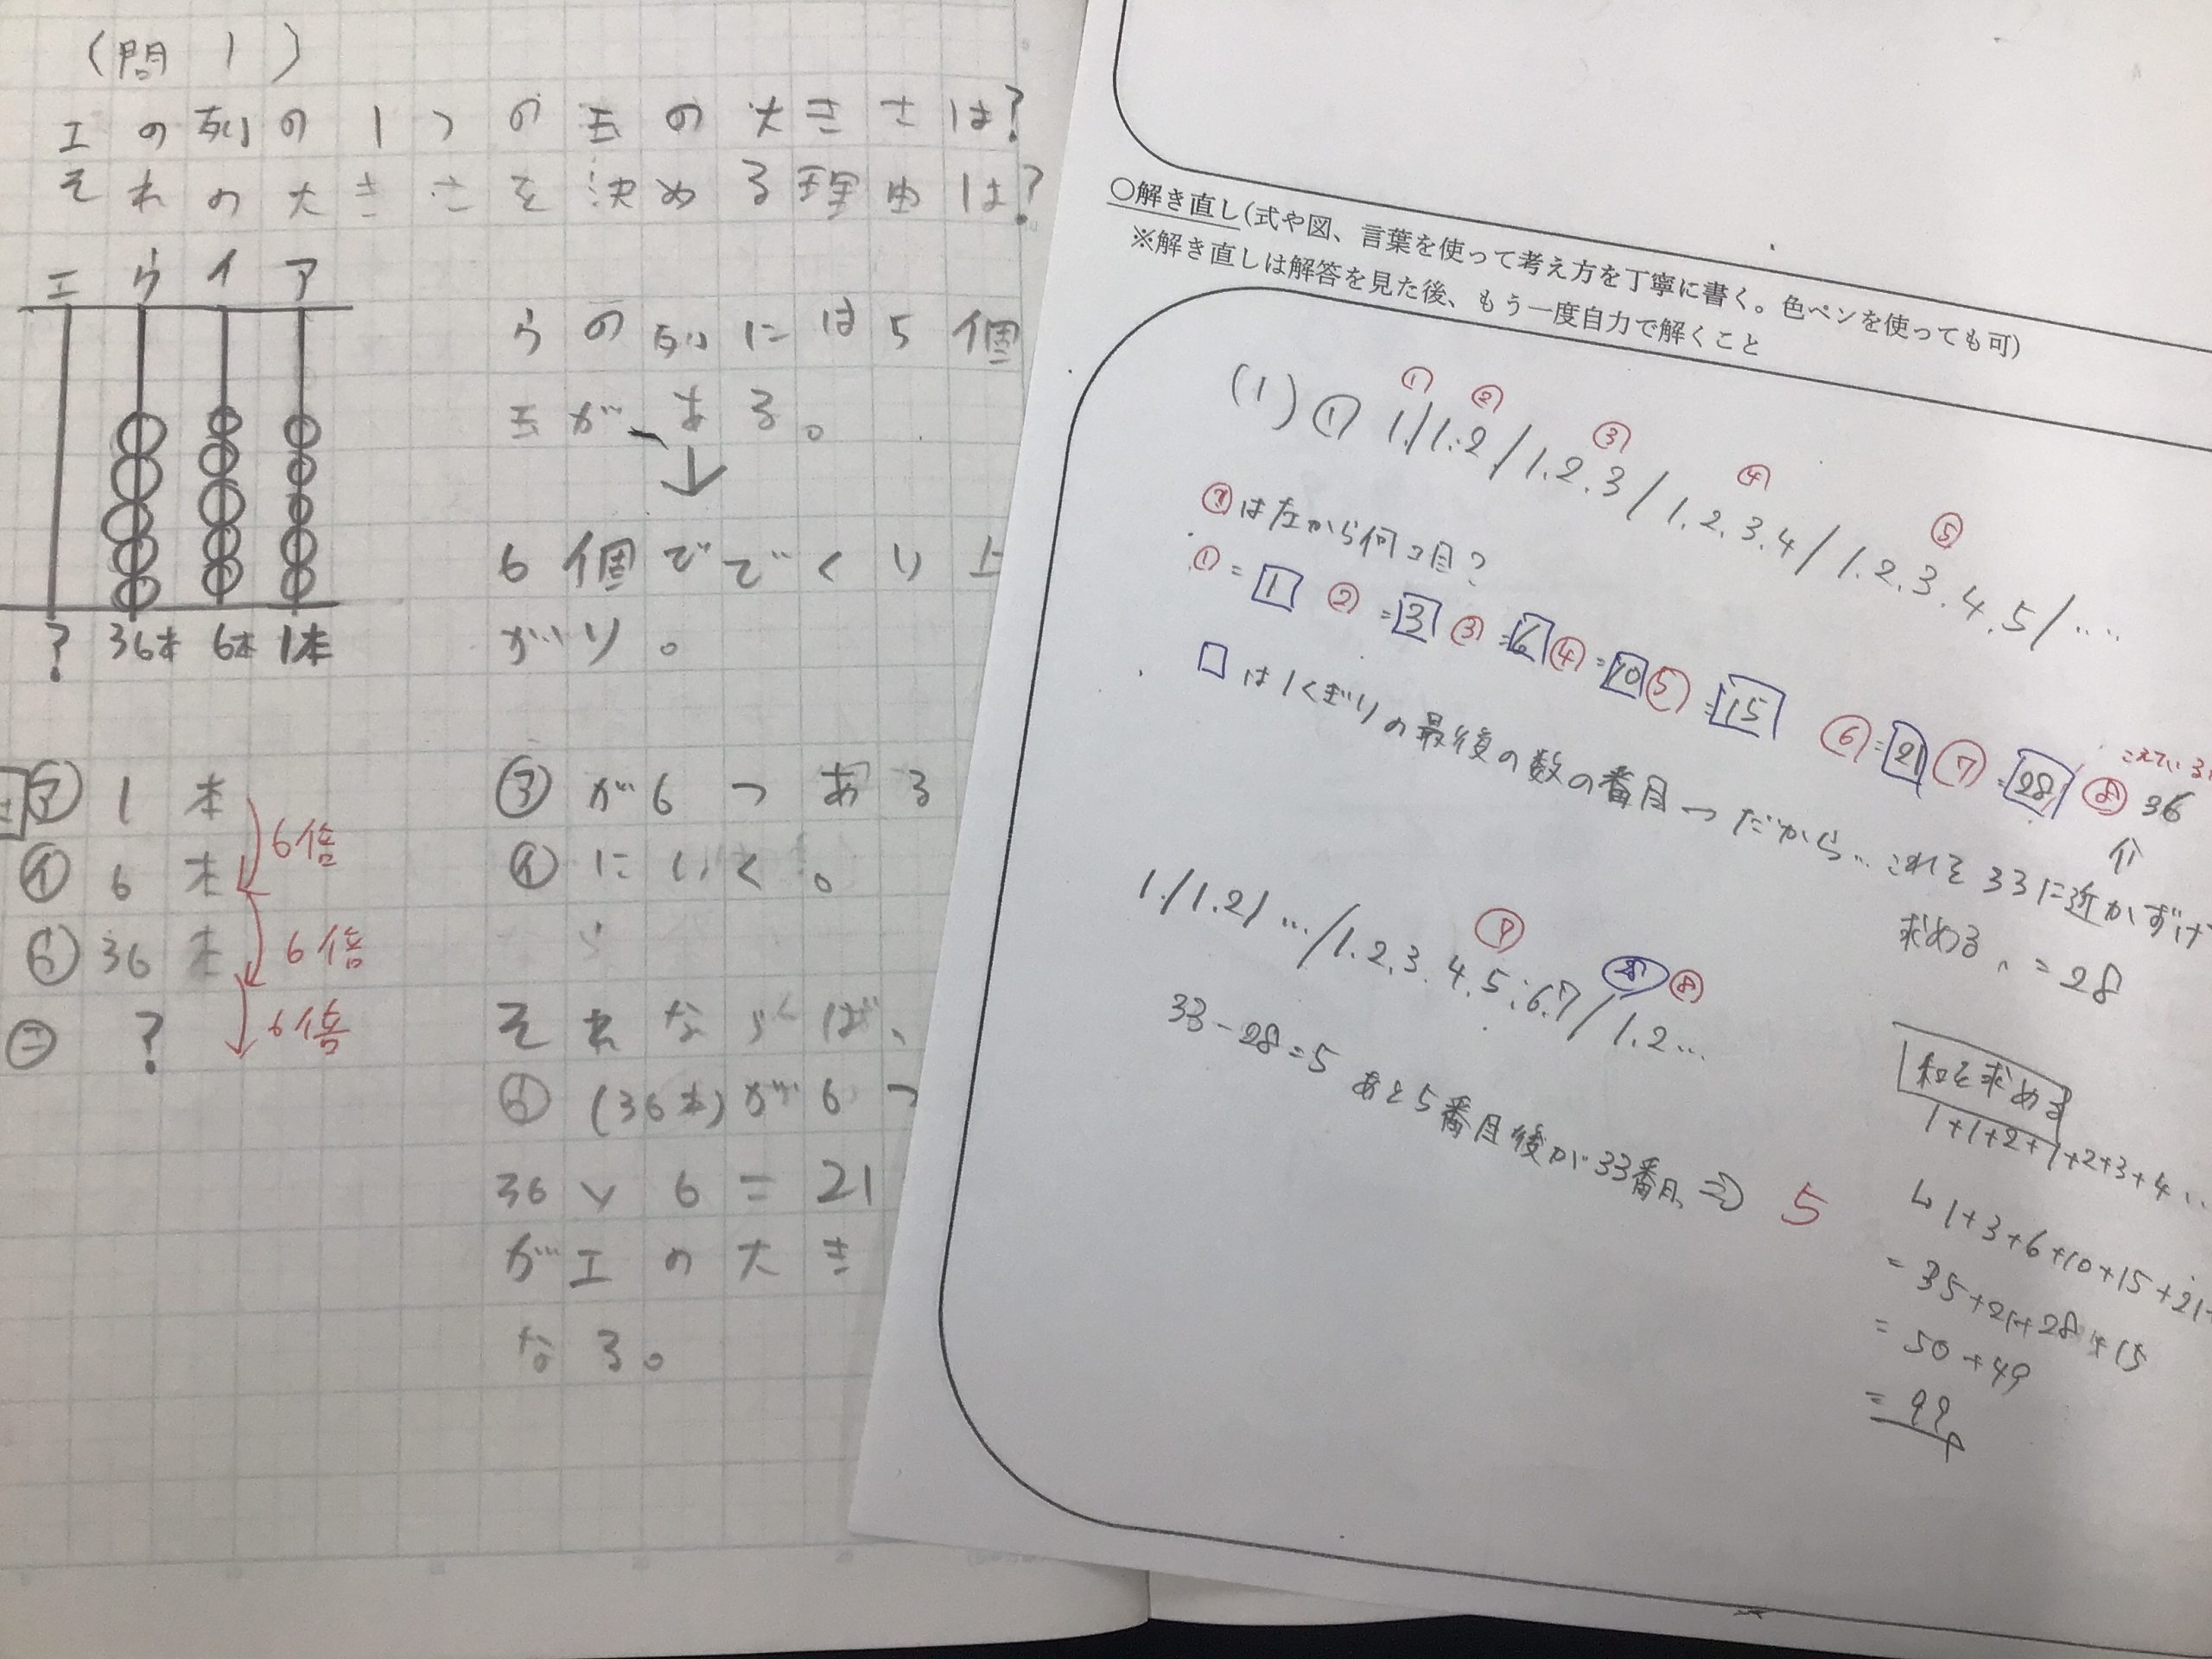 (問1)
エの列の1つの玉の大きさは?
それの大きさを決める理由は?
エ ウ イ ア
? 36本 6本 1本
うの列には5個
玉が、ある。
↓
6個ででくり上
がり。
㋐ 1本
㋑ 6本
㋒ 36本
㋓ ?
6倍
6倍
6倍
㋐が6つある
㋑にいく。
それならば、
㋒(36本)が6つ
36×6=21
がエの大き
なる。
○解き直し(式や図、言葉を使って考え方を丁寧に書く。色ペンを使っても可)
※解き直しは解答を見た後、もう一度自力で解くこと
① ② ③ ④ ⑤
(1)① 1./1.2/1.2.3/1.2.3.4/1.2.3.4.5/....
は左から何コ目?
①=1 ②=3 ③=6 ④=10 ⑤=15 ⑥=21 ⑦=28 ⑧ 36
こえている
□は1くぎりの最後の数の番目→だから…これを33に近かずけ
求める、=28
⑦ 28 ⑧
1./1.2/…/1.2.3.4.5.6.7/1.2…
33-28=5 あと5番目後が33番目、⇒ 5
和を求める
1+1+2+1+2+3+4..
↳1+3+6+10+15+21+
=35+21+28+15
=50+49
=99